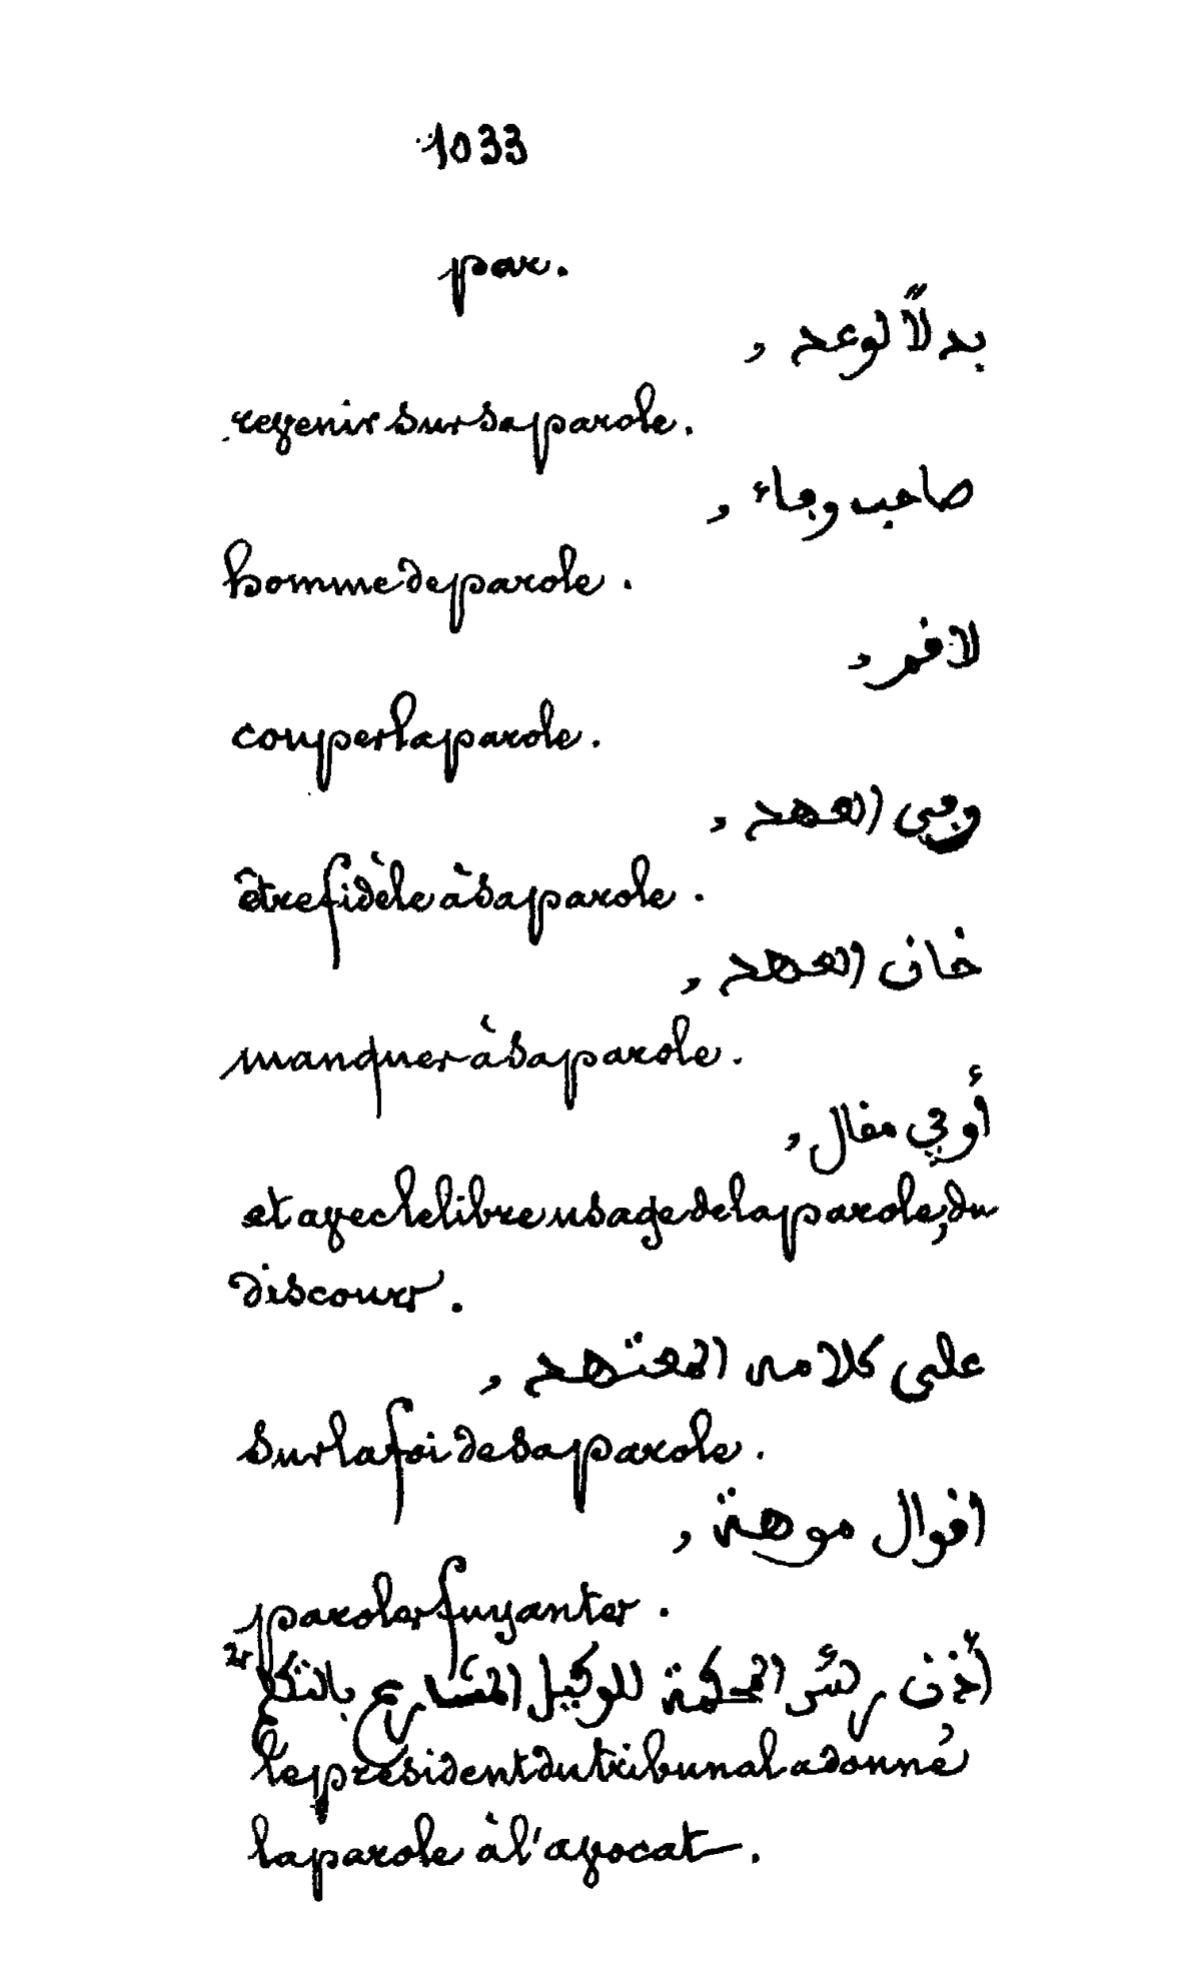 1033
par.
بدلاً لوعد ,
revenir sur sa parole.
صاحب وفاء ,
homme de parole.
لا فمر ,
couper la parole.
وفى العهد ,
être fidèle à sa parole.
خان العهد ,
manquer à sa parole.
أو في مقال ,
et avec le libre usage de la parole, du
discours.
على كلامه المعتهد ,
sur la foi de sa parole.
اقوال موهة ,
paroles fuyantes.
أذن رئس المحكمة للوكيل المشارع بالتكلم
le président du tribunal a donné
la parole à l'avocat.